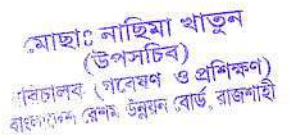 মোছাঃ নাছিমা খাতুন
(উপসচিব)
পরিচালক (গবেষণা ও প্রশিক্ষণ)
বাংলাদেশ রেশম উন্নয়ন বোর্ড, রাজশাহী